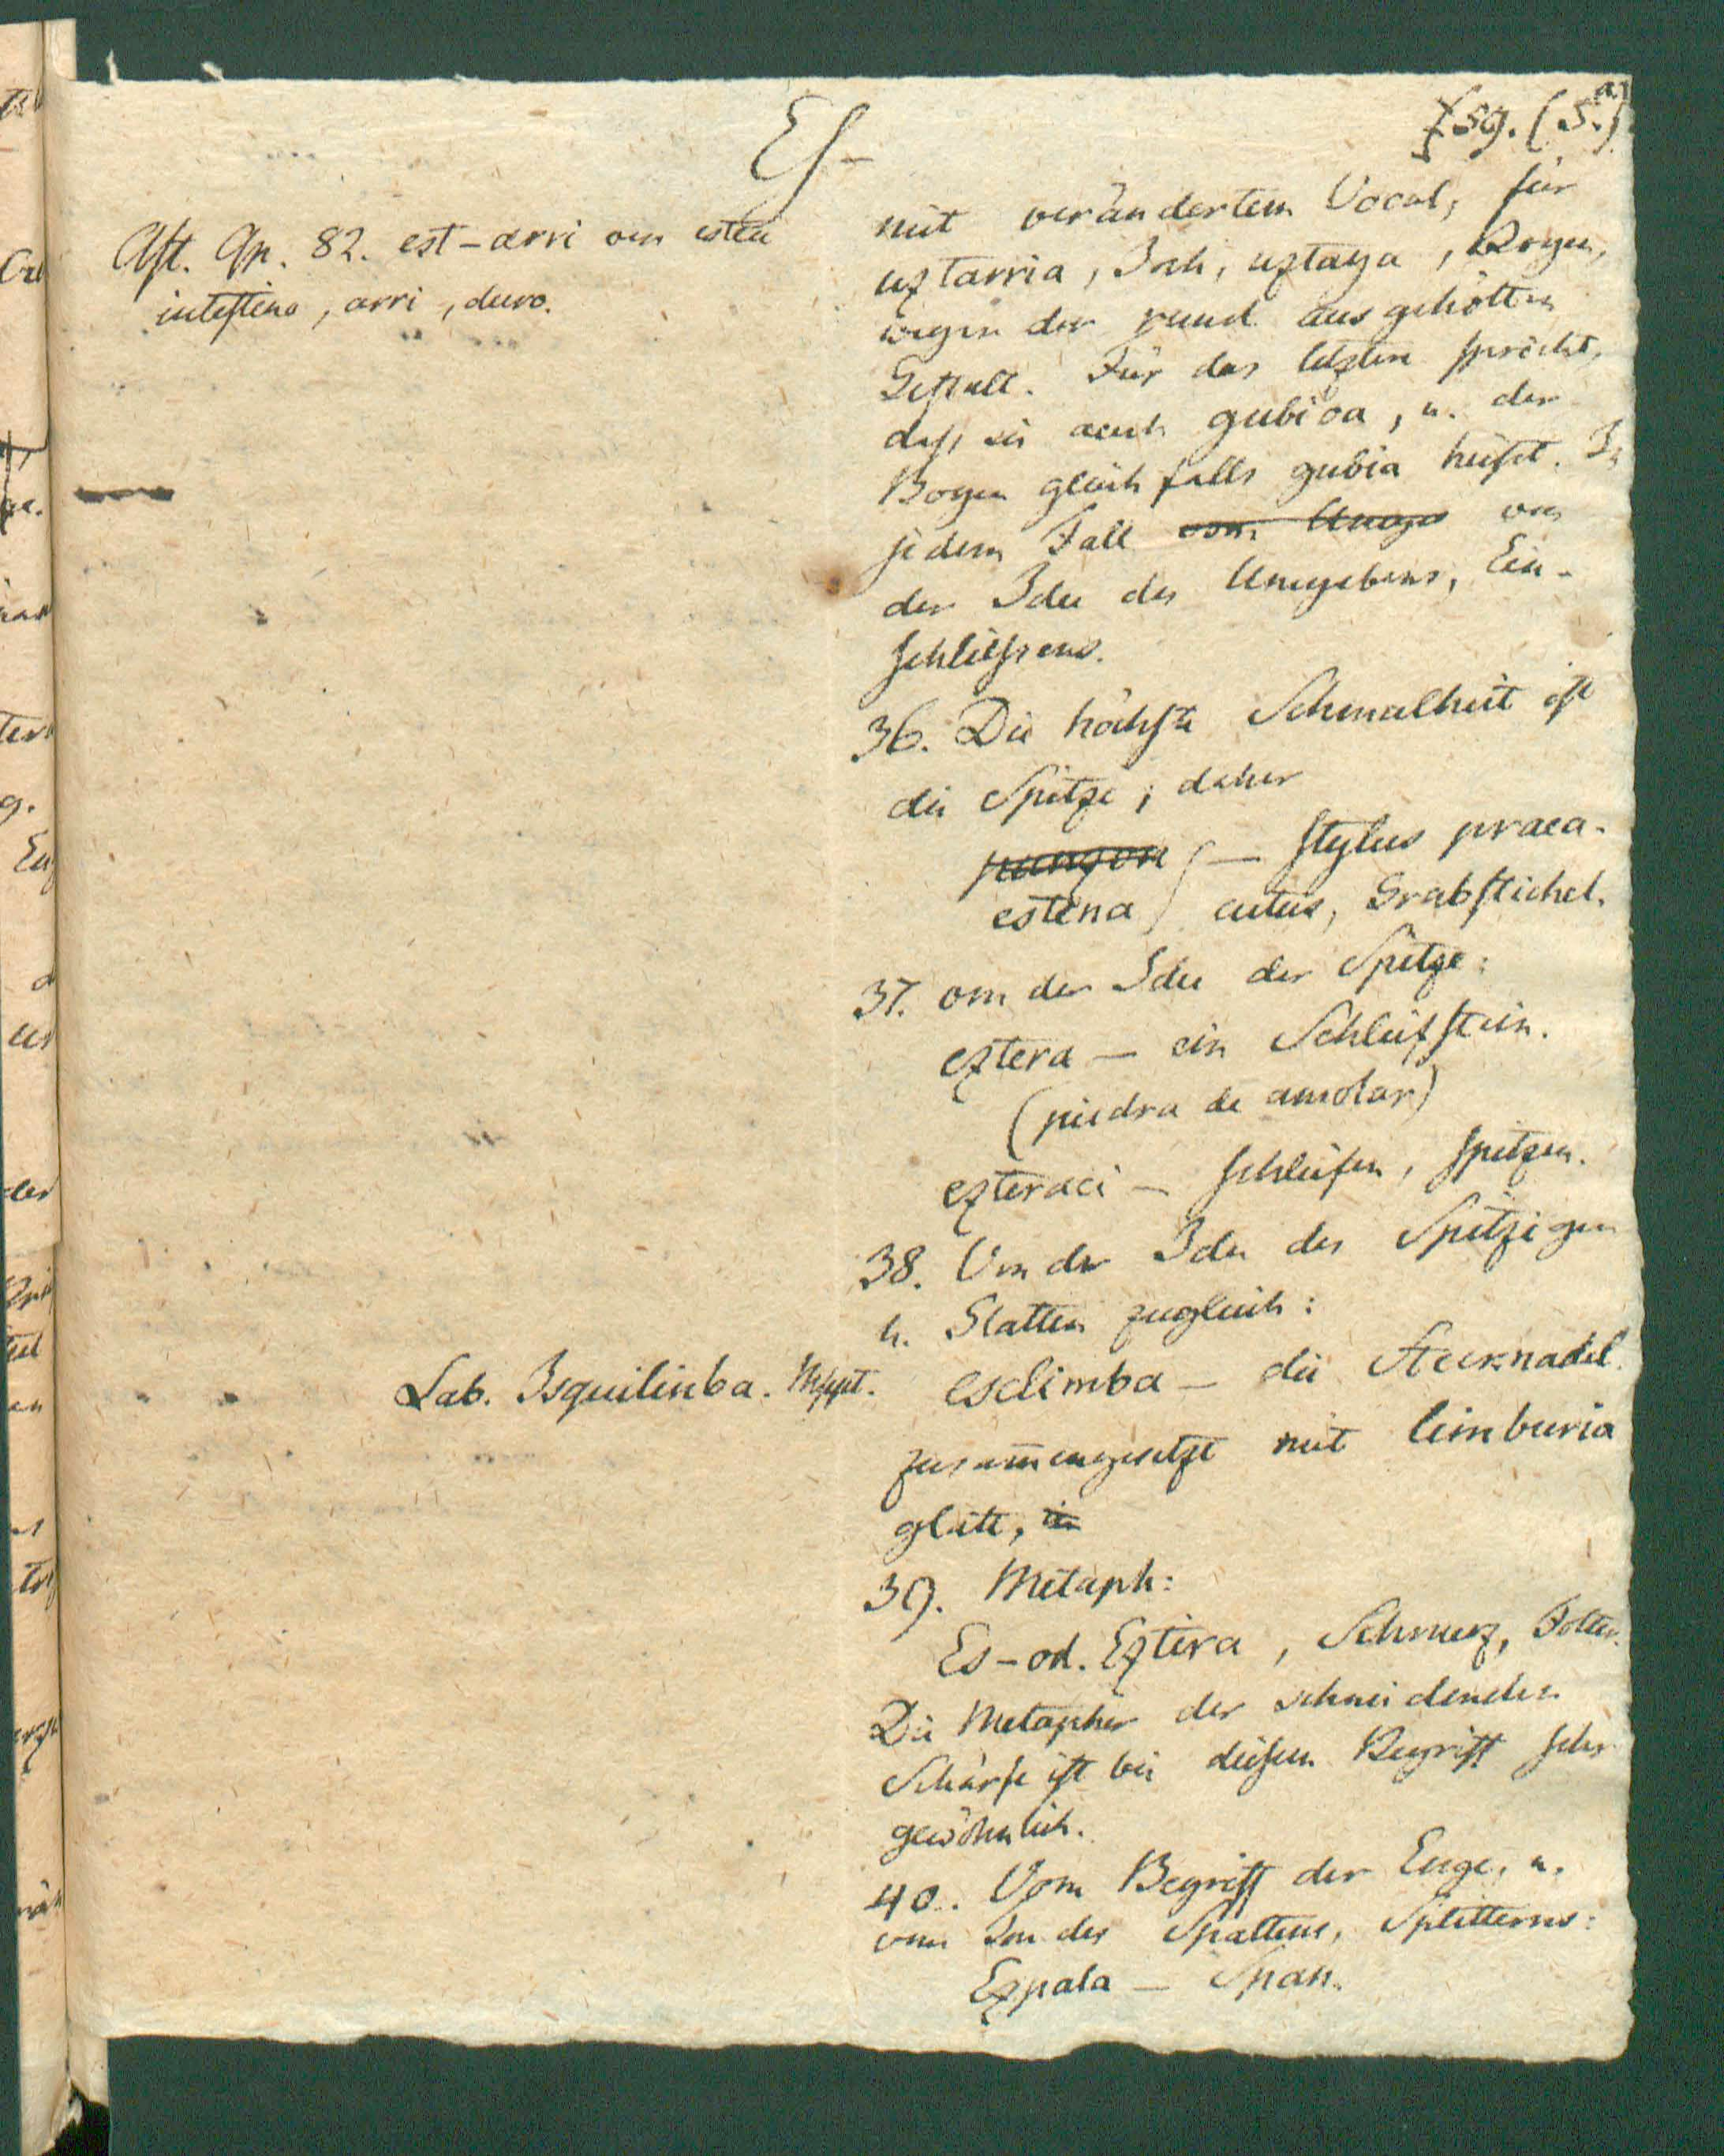 Es-
59. (5.a)
Ast. Ap. 82. est-arri von estea
intestino, arri, duro.
mit verändertem Vocal, für
uztarria, Joch, uztaya, Bogen,
wegen der rund ausgehölten
Gestalt. Für das letztere spricht,
dass sie auch gubioa, u. der
Bogen gleichfalls gubia heisst. In
jedem Fall vom von
der Idee des Umgebens, Ein-
schliessens.
36. Die höchste Schmalheit ist
die Spitze; daher
punzon — stylus praea-
estena cutus, Grabstichel.
37. von der Idee der Spitze:
eztera — ein Schleifstein.
(piedra de amolar)
ezteraci — schleifen, spitzen.
38. Von der Idee des Spitzigen
u. Glatten zugleich:
Lab. Isquilinba. Mspt.
esclimba — die Stecknadel.
zusammengesetzt mit limburia
glatt,
39. Metaph:
Es-od. Eztira, Schmerz, Folter.
Die Metapher der schneidenden
Schärfe ist bei diesem Begriff sehr
gewöhnlich.
40. Vom Begriff der Enge, u.
vom des Spaltens, Splitterns:
Ezpala — Span.